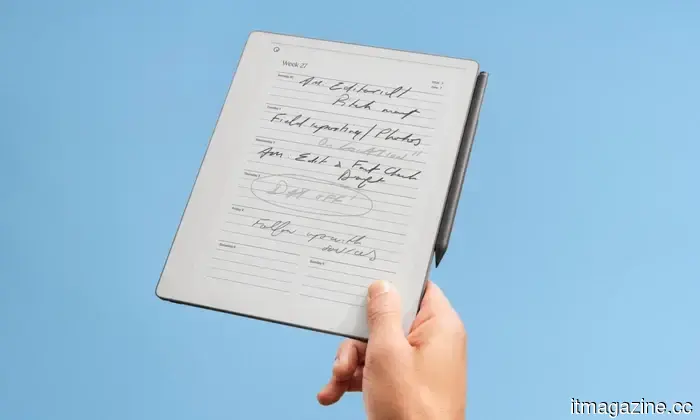 Week 27
Am. Editorial/
Pitch
Field reporting / Photos
On location"
Am Edit & Fact Check
Draft
DAY OFF!
Follow up with
sources
itmagazine.cc